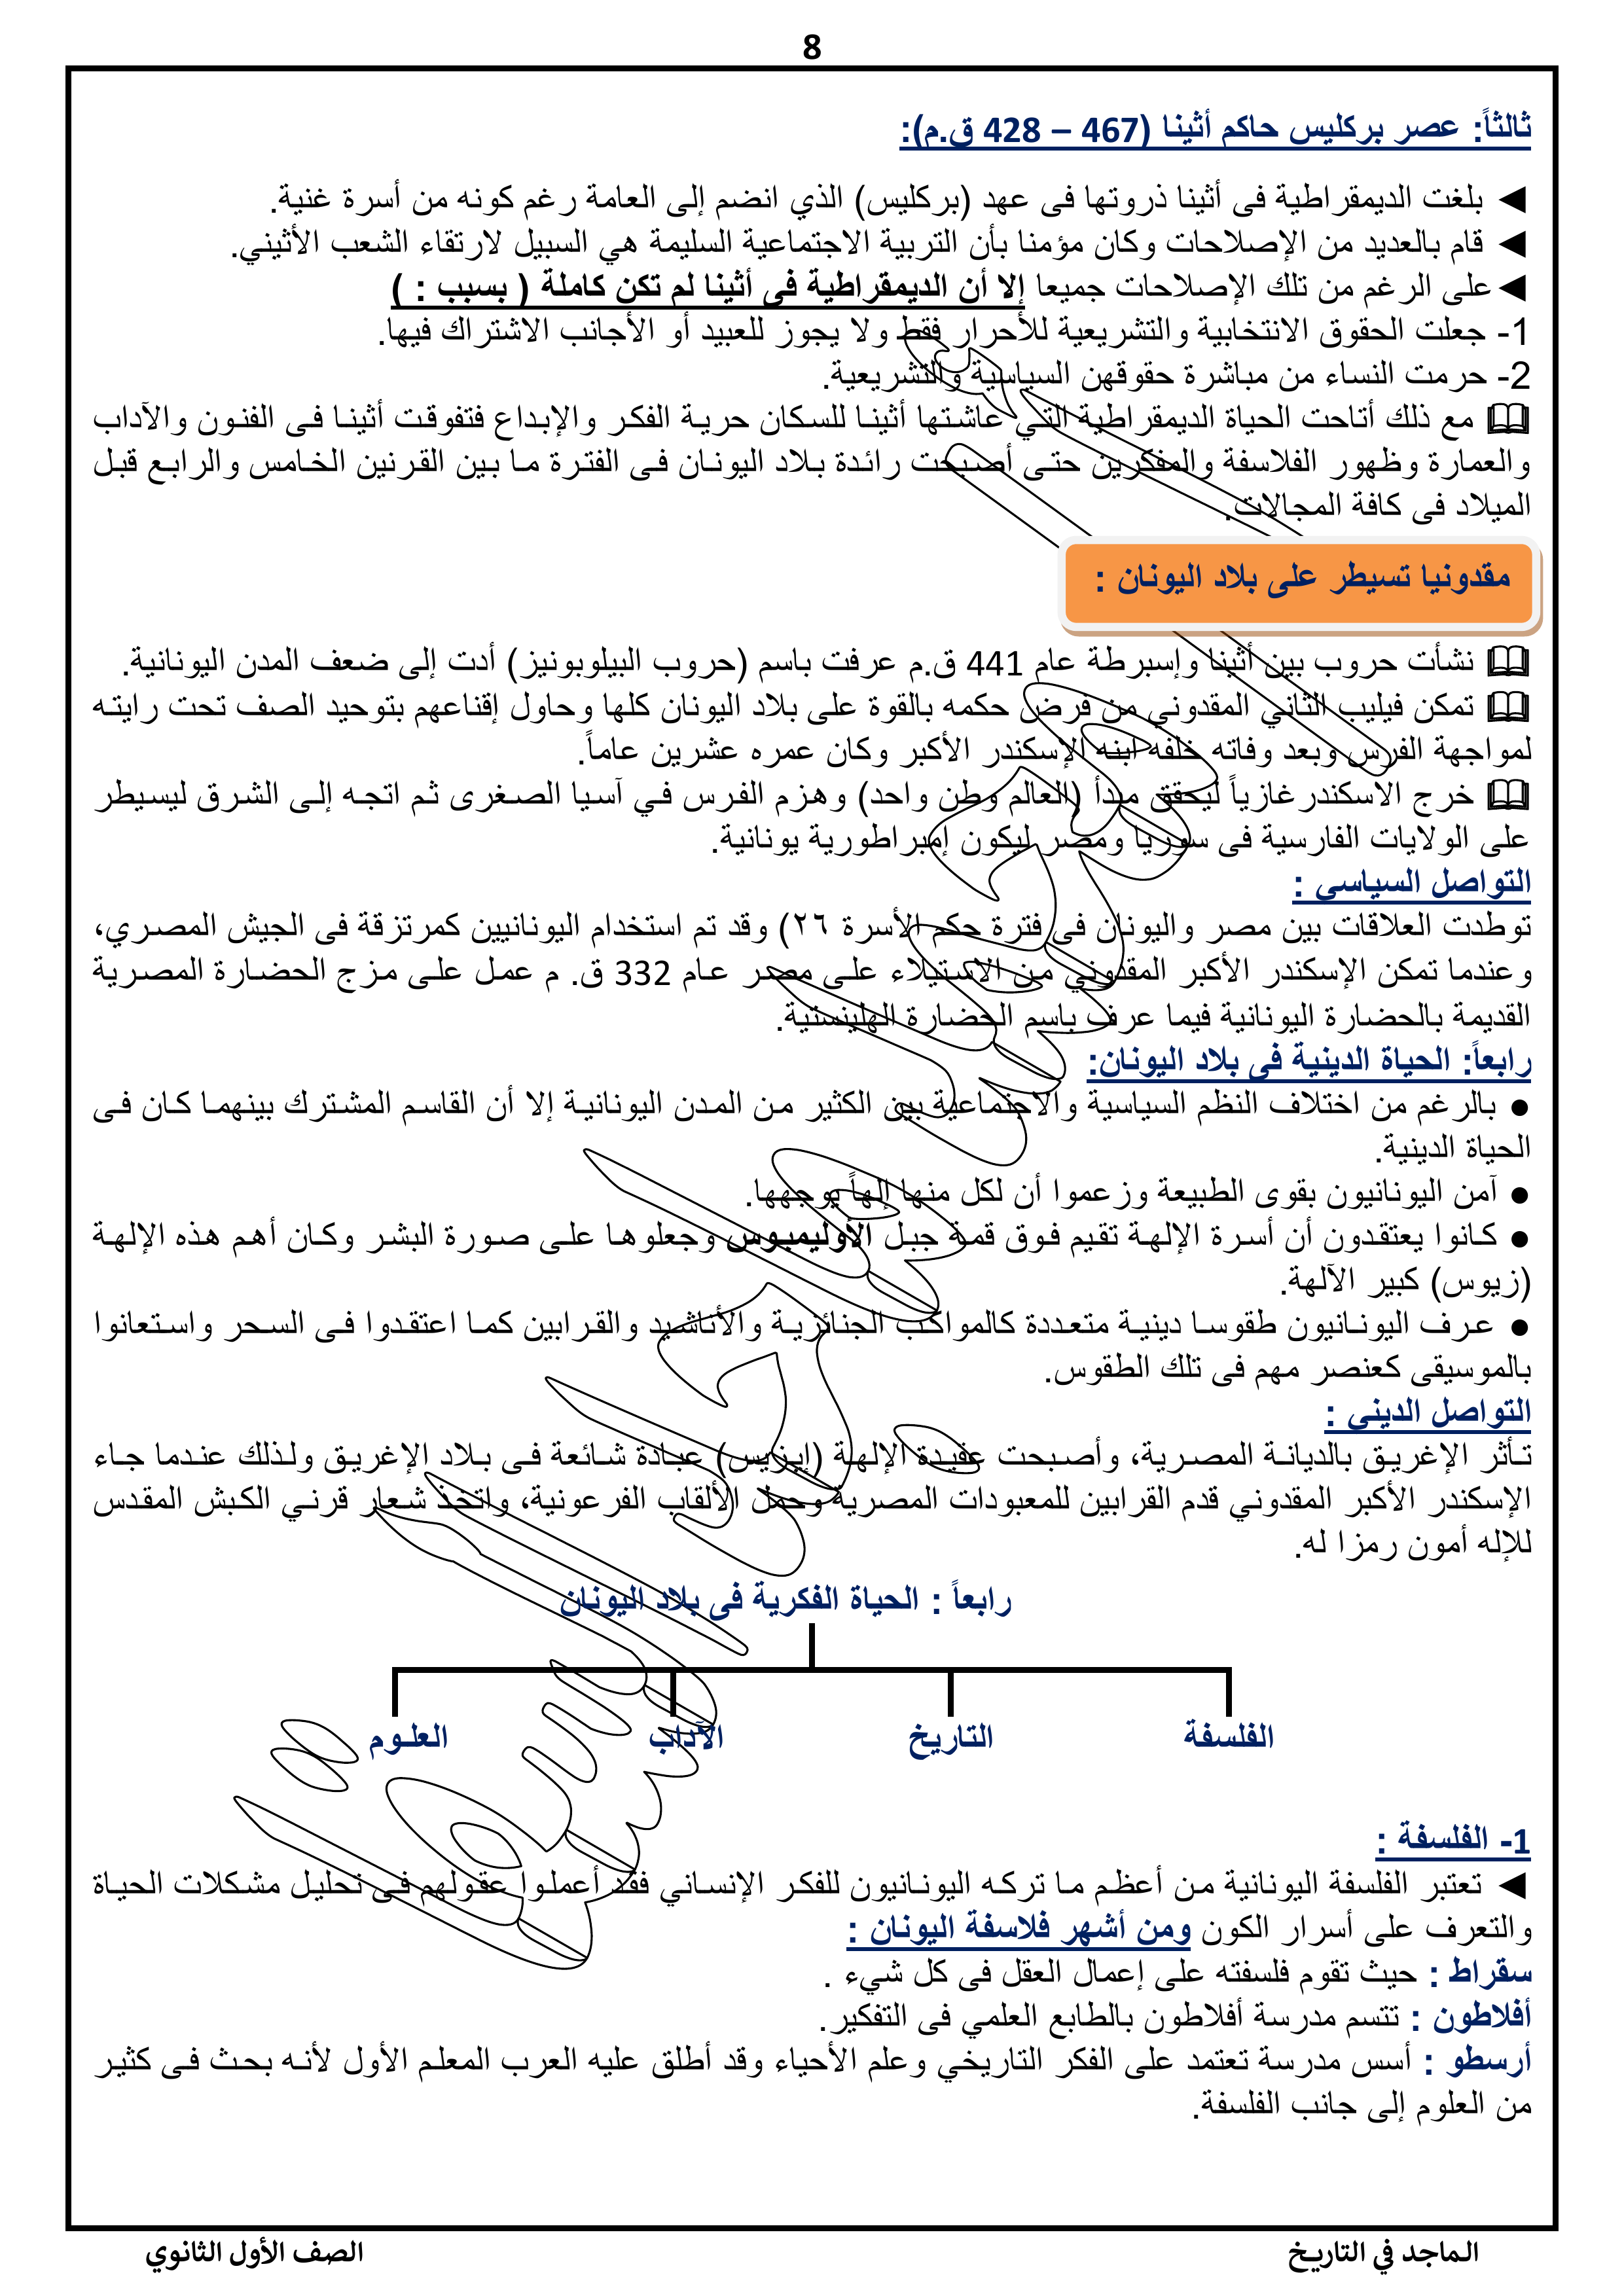 8
ثالثاً: عصر بركليس حاكم أثينا (467 – 428 ق.م):
◄ بلغت الديمقراطية فى أثينا ذروتها فى عهد (بركليس) الذي انضم إلى العامة رغم كونه من أسرة غنية.
◄ قام بالعديد من الإصلاحات وكان مؤمنا بأن التربية الاجتماعية السليمة هي السبيل لارتقاء الشعب الأثيني.
◄على الرغم من تلك الإصلاحات جميعا إلا أن الديمقراطية فى أثينا لم تكن كاملة ( بسبب : )
1- جعلت الحقوق الانتخابية والتشريعية للأحرار فقط ولا يجوز للعبيد أو الأجانب الاشتراك فيها.
2- حرمت النساء من مباشرة حقوقهن السياسية والتشريعية.
🕮 مع ذلك أتاحت الحياة الديمقراطية التي عاشتها أثينا للسكان حرية الفكر والإبداع فتفوقت أثينا فى الفنون والآداب
والعمارة وظهور الفلاسفة والمفكرين حتى أصبحت رائدة بلاد اليونان فى الفترة ما بين القرنين الخامس والرابع قبل
الميلاد فى كافة المجالات.
مقدونيا تسيطر على بلاد اليونان :
🕮 نشأت حروب بين أثينا وإسبرطة عام 441 ق.م عرفت باسم (حروب البيلوبونيز) أدت إلى ضعف المدن اليونانية.
🕮 تمكن فيليب الثاني المقدوني من فرض حكمه بالقوة على بلاد اليونان كلها وحاول إقناعهم بتوحيد الصف تحت رايته
لمواجهة الفرس وبعد وفاته خلفه ابنه الإسكندر الأكبر وكان عمره عشرين عاماً.
🕮 خرج الاسكندرغازياً ليحقق مبدأ (العالم وطن واحد) وهزم الفرس في آسيا الصغرى ثم اتجه إلى الشرق ليسيطر
على الولايات الفارسية فى سوريا ومصر ليكون إمبراطورية يونانية.
التواصل السياسي :
توطدت العلاقات بين مصر واليونان فى فترة حكم الأسرة ٢٦) وقد تم استخدام اليونانيين كمرتزقة فى الجيش المصري،
وعندما تمكن الإسكندر الأكبر المقدوني من الاستيلاء على مصر عام 332 ق. م عمل على مزج الحضارة المصرية
القديمة بالحضارة اليونانية فيما عرف باسم الحضارة الهلينستية.
رابعاً: الحياة الدينية فى بلاد اليونان:
● بالرغم من اختلاف النظم السياسية والاجتماعية بين الكثير من المدن اليونانية إلا أن القاسم المشترك بينهما كان فى
الحياة الدينية.
● آمن اليونانيون بقوى الطبيعة وزعموا أن لكل منها إلهاً يوجهها.
● كانوا يعتقدون أن أسرة الإلهة تقيم فوق قمة جبل الأوليمبوس وجعلوها على صورة البشر وكان أهم هذه الإلهة
(زيوس) كبير الآلهة.
● عرف اليونانيون طقوسا دينية متعددة كالمواكب الجنائزية والأناشيد والقرابين كما اعتقدوا فى السحر واستعانوا
بالموسيقى كعنصر مهم فى تلك الطقوس.
التواصل الديني :
تأثر الإغريق بالديانة المصرية، وأصبحت عقيدة الإلهة (إيزيس) عبادة شائعة فى بلاد الإغريق ولذلك عندما جاء
الإسكندر الأكبر المقدوني قدم القرابين للمعبودات المصرية وحمل الألقاب الفرعونية، واتخذ شعار قرني الكبش المقدس
للإله أمون رمزا له.
رابعاً : الحياة الفكرية فى بلاد اليونان
الفلسفة التاريخ الآداب العلوم
1- الفلسفة :
◄ تعتبر الفلسفة اليونانية من أعظم ما تركه اليونانيون للفكر الإنساني فقد أعملوا عقولهم فى تحليل مشكلات الحياة
والتعرف على أسرار الكون ومن أشهر فلاسفة اليونان :
سقراط : حيث تقوم فلسفته على إعمال العقل فى كل شيء .
أفلاطون : تتسم مدرسة أفلاطون بالطابع العلمي فى التفكير.
أرسطو : أسس مدرسة تعتمد على الفكر التاريخي وعلم الأحياء وقد أطلق عليه العرب المعلم الأول لأنه بحث فى كثير
من العلوم إلى جانب الفلسفة.
الماجد في التاريخ الصف الأول الثانوي